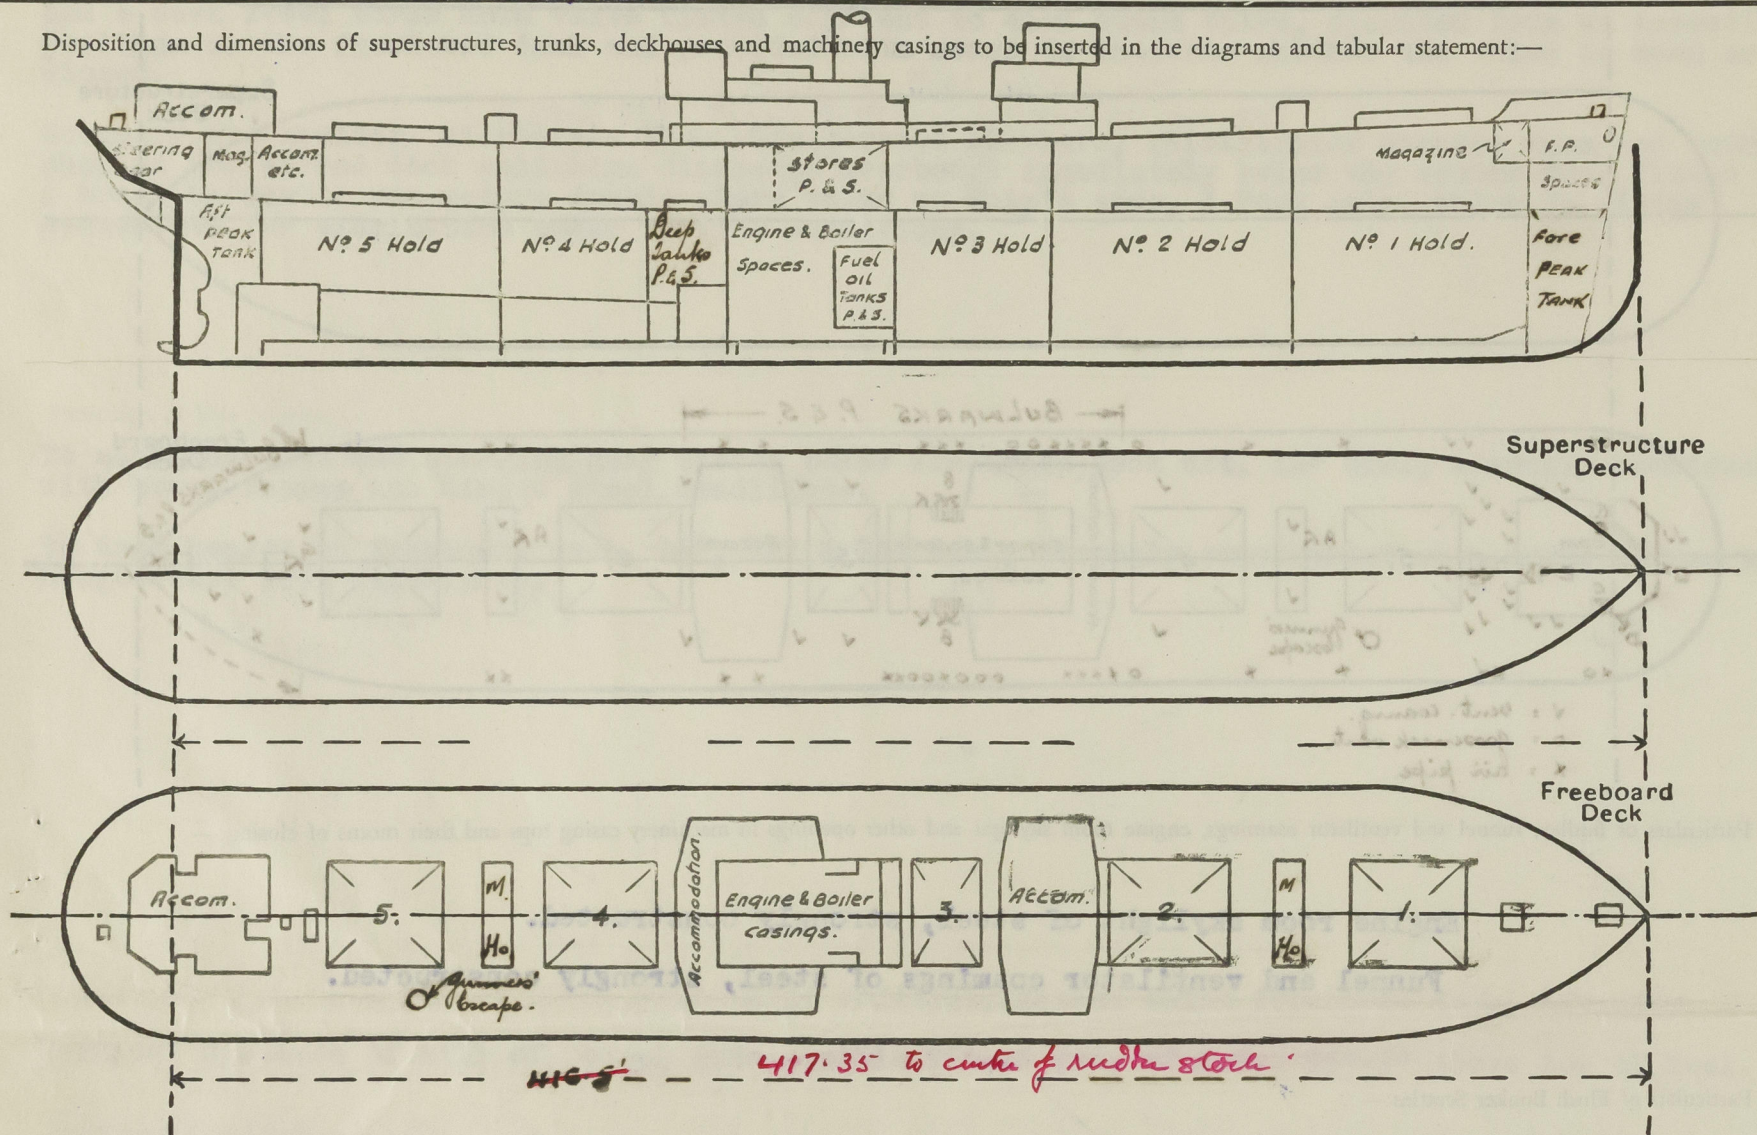 Disposition and dimensions of superstructures, trunks, deckhouses and machinery casings to be inserted in the diagrams and tabular statement:—
Accom.
Steering
Gear
Mag.
Accom.
etc.
Stores
P. & S.
Magazine
F.P.
Spaces
Aft
PEAK
Tank
No 5 Hold
No 4 Hold
Deep
Tanks
P.& S.
Engine & Boiler
Spaces.
Fuel
OIL
Tanks
P.& S.
No 3 Hold
No 2 Hold
No 1 Hold.
Fore
PEAK
TANK
BULWARKS P. & S.
Superstructure
Deck
Freeboard
Deck
Accom.
5.
M.
Ho
4.
Accommodation.
Engine & Boiler
casings.
3.
Accom.
2.
M
Ho
1.
gunners'
Escape.
Funnel and ventilator coamings of steel, strongly constructed.
417.35 to centre of rudder stock